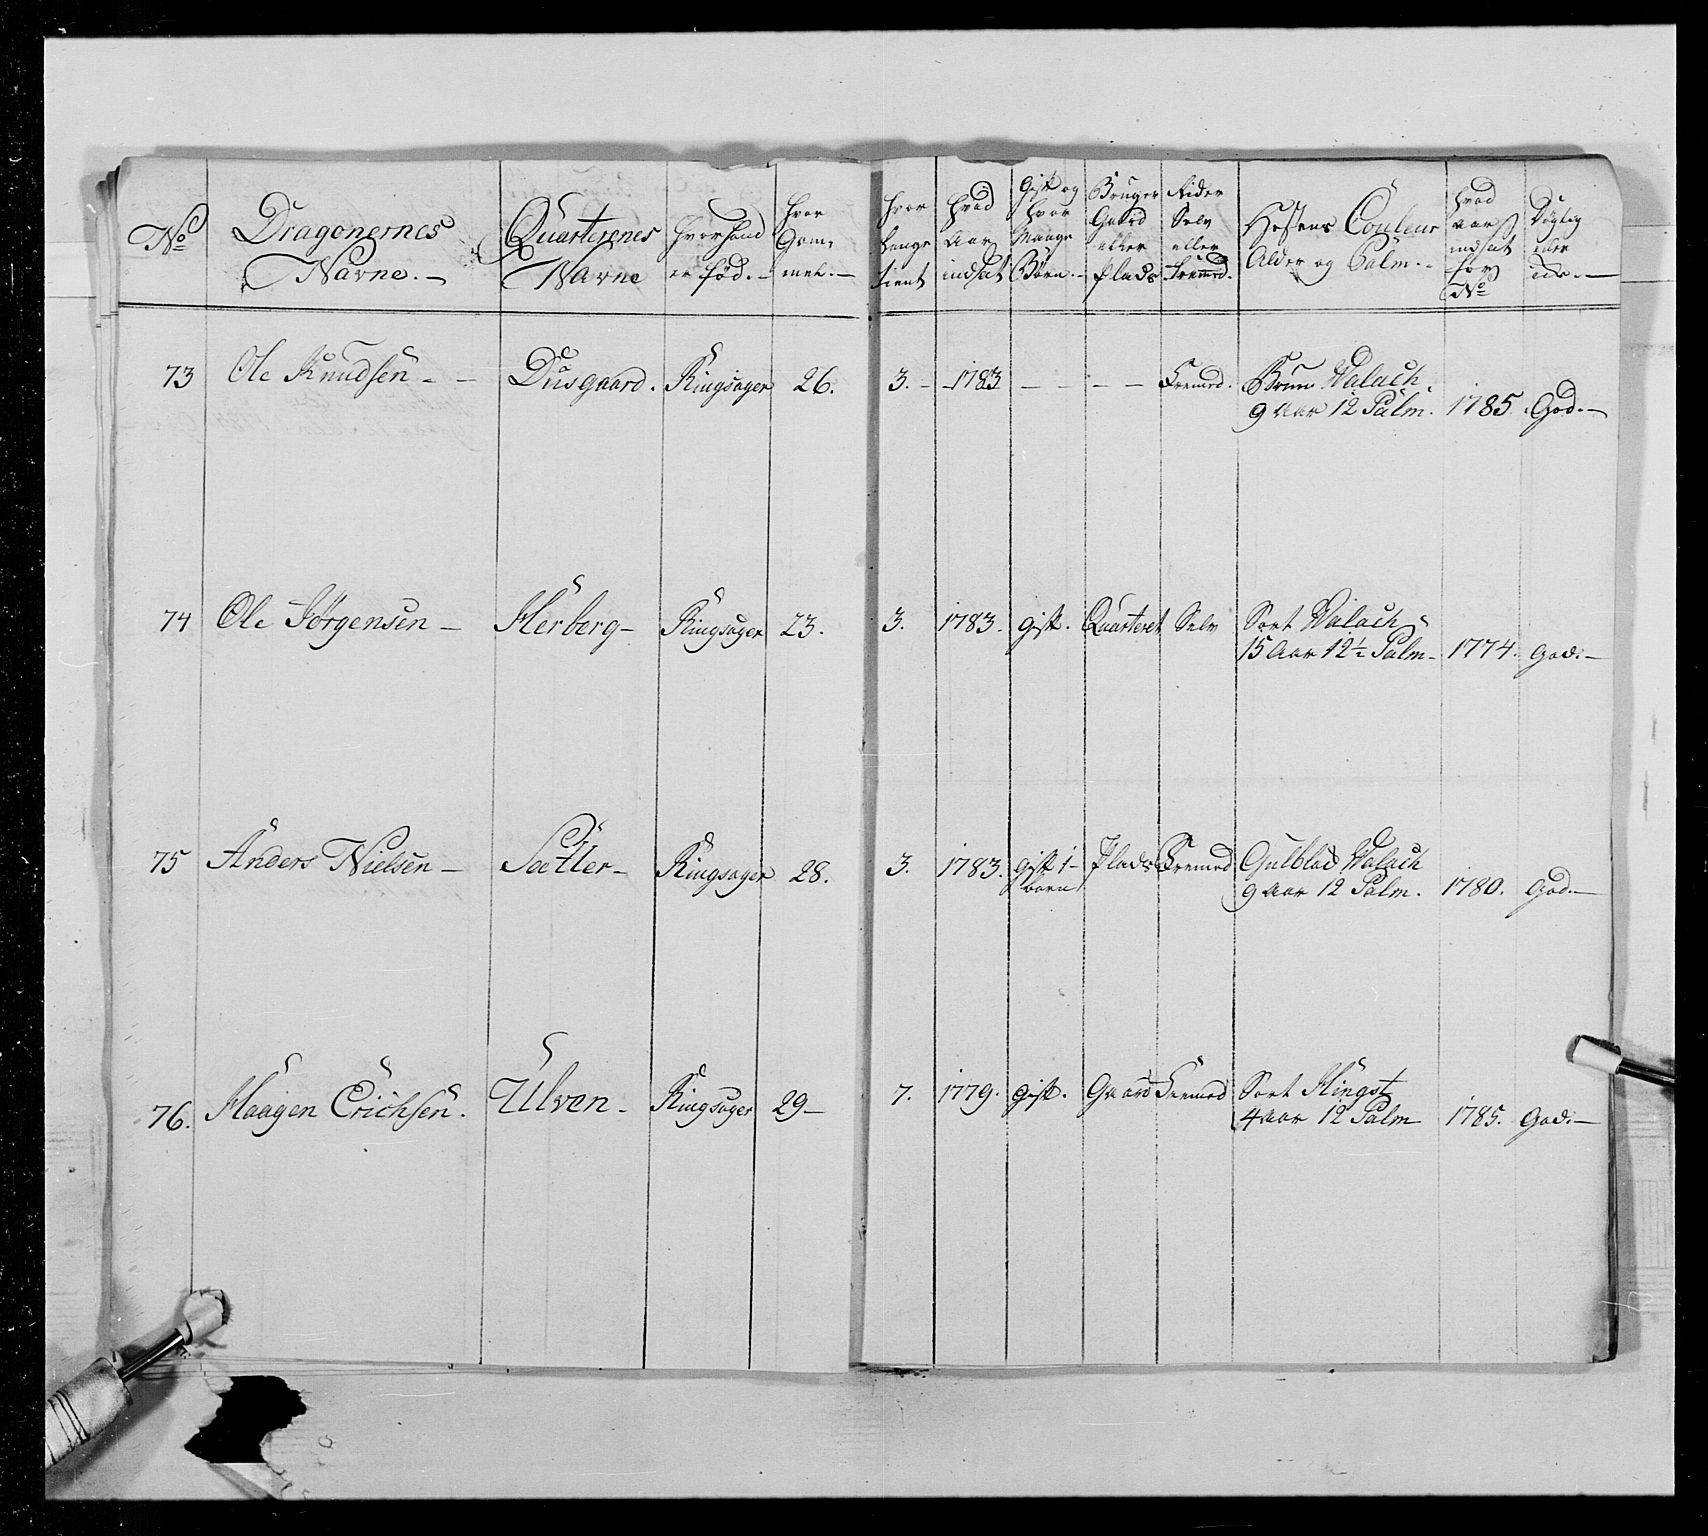 No
Dragonernes
Navne. -
Quarterenes
Navne
hvor hand
er fød. -
hvor
Gam,
mel. -
hvor
længe
tient
hvad
Aar
indsat
Gift og
hvor
Mange
Børn. -
Bruger
Gaard
eller
Plads
Rider
Selv
eller
Fremed.
Hestens Couleur
Alder og Palm. -
hvad
aar
indsat
for
No
73 Ole Knudsen - - Dusgaard. Ringsager 26. 3. - -1783 - - - - Fremed. Brun Valach.
9 Aar 12 Palm. 1785. God. -
74 Ole Jørgensen - Herberg - Ringsager 23. 3. 1783. gift. Quarteret Selv Sort Valach
15 Aar 12½ Palm - 1774. God. -
75 Anders Nielsen - Sætter - Ringsager 28. 3. 1783. gift 1- Plads Fremed Gulblac Valach
barn 9 Aar 12 Palm. 1780. God. -
76. Haagen Erichsen. Ulven - Ringsager 29 - 7. 1779. gift. Gaard Fremed Sort Hingst
4 aar 12 Palm 1785. God. -